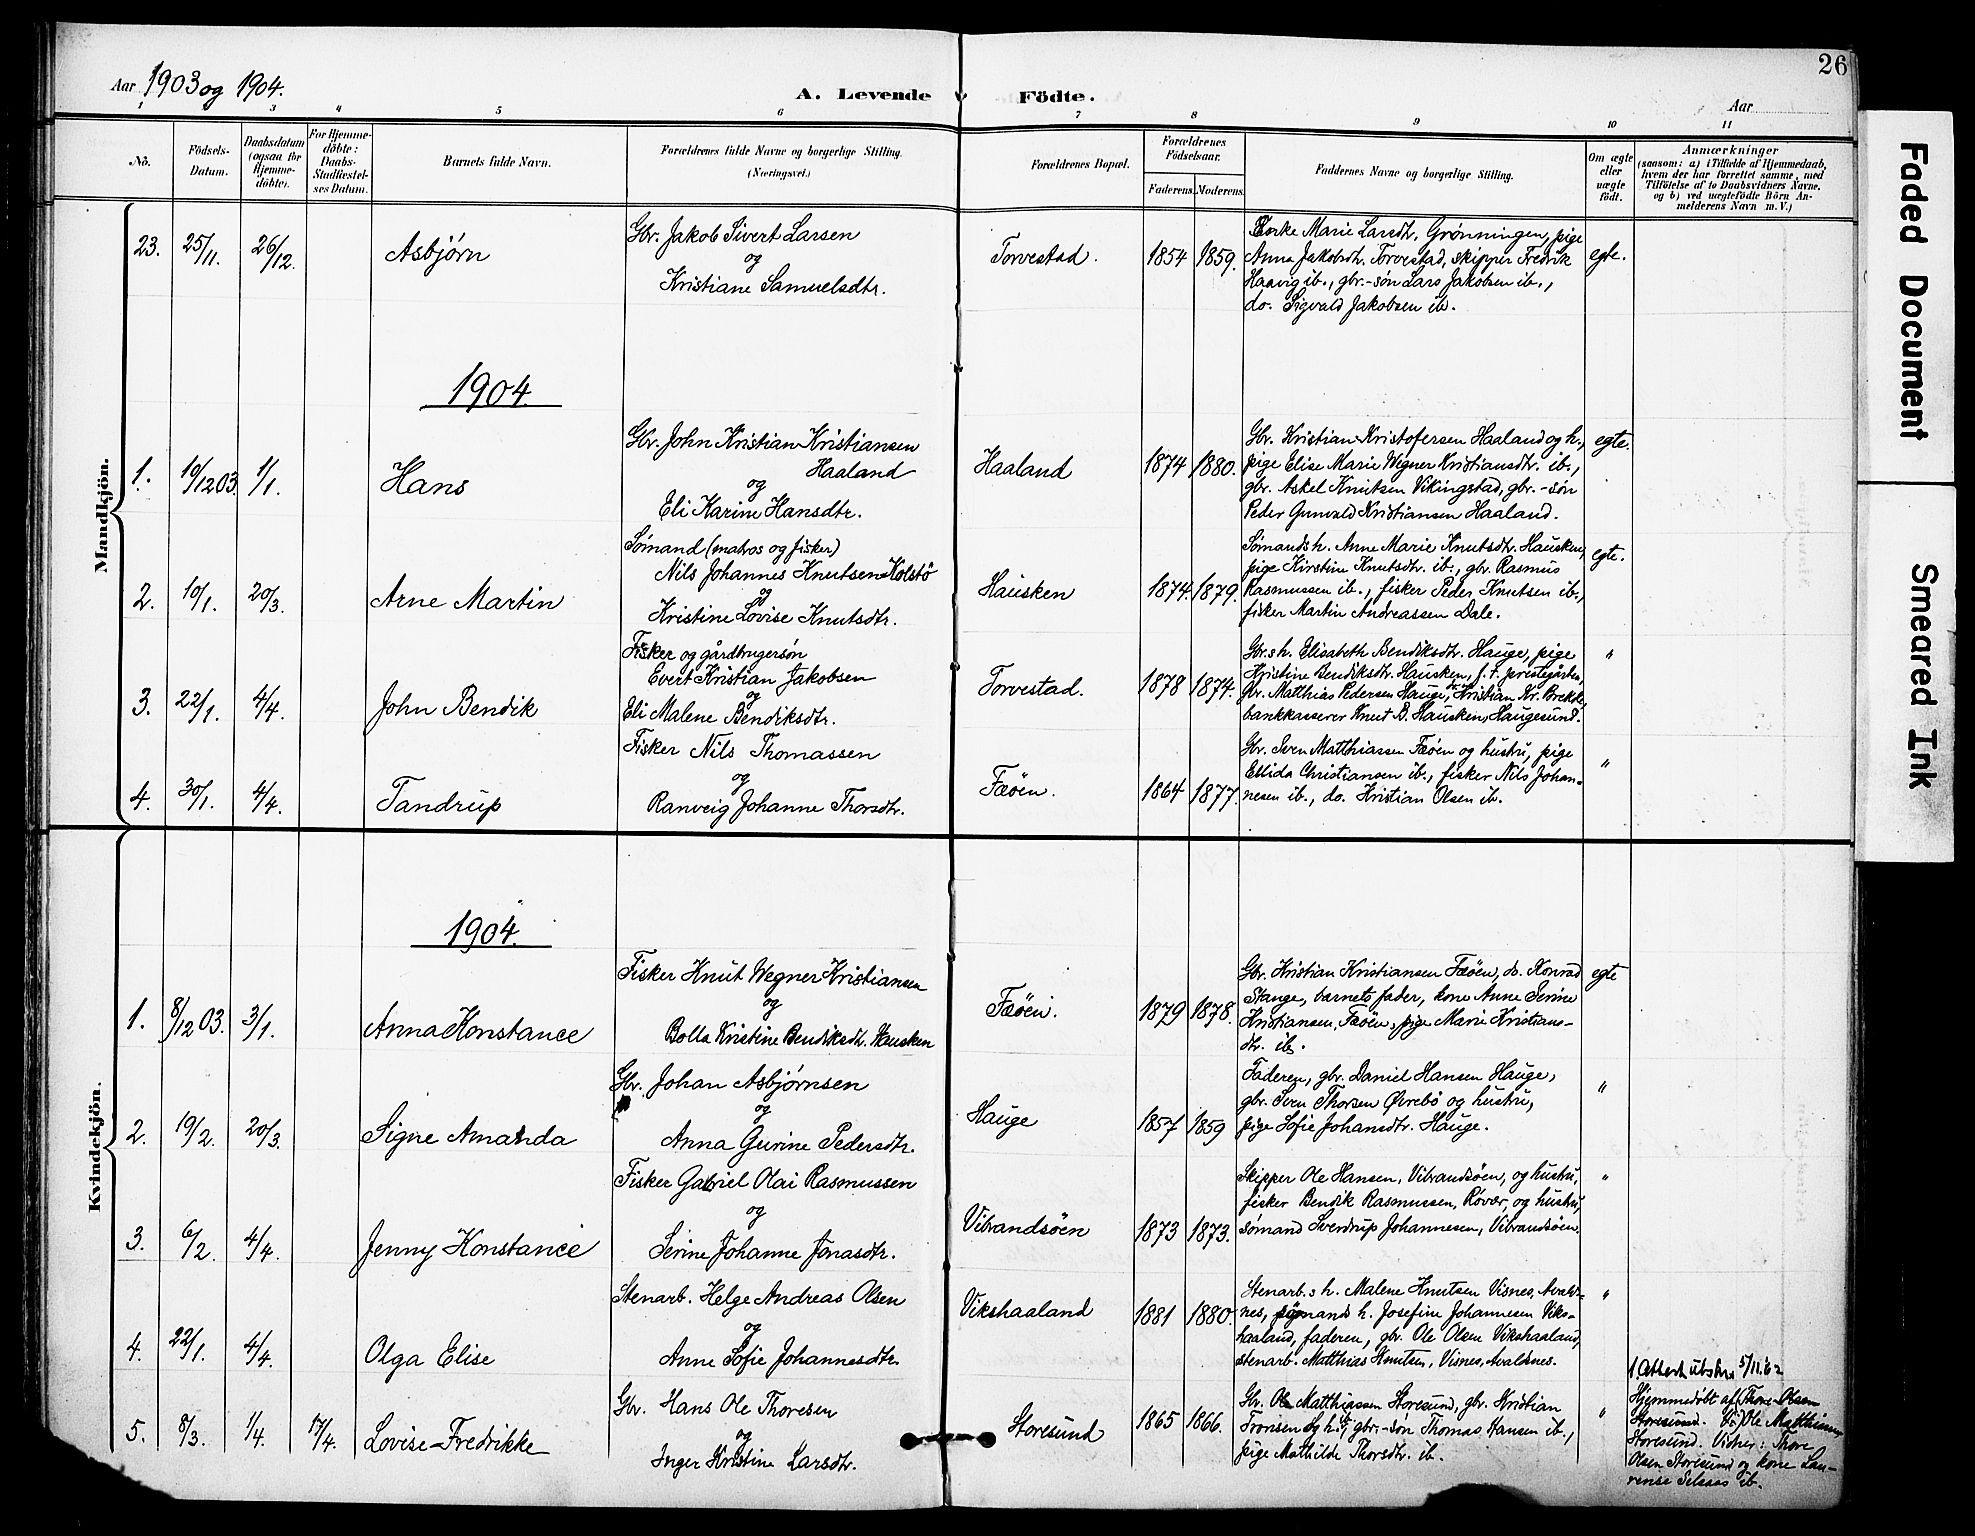 26
Aar 1903 og 1904.
A. Levende Födte.
Aar
1 3 4 5 6 7 8 9 10 11
No.
Födsels-
Datum.
Daabsdatum
(ogsaa for
Hjemme-
döbte).
For Hjemme-
döbte:
Daabs-
Stadfæstel-
ses Datum.
Barnets fulde Navn.
Forældrenes fulde Navne og borgerlige Stilling.
(Næringsvei.)
Forældrenes Bopæl.
Forældrenes
Födselsaar.
Faderens. Moderens.
Faddernes Navne og borgerlige Stilling.
Om ægte
eller
uægte
födt.
Anmærkninger
(saasom: a) i Tilfælde af Hjemmedaab,
hvem der har forrettet samme, med
Tilföielse af to Daabsvidners Navne,
og b) ved uægtefödte Börn An-
melderens Navn m. V.)
Mandkjön.
23. 25/11. 26/12. Asbjørn
Gbr. Jakob Sivert Larsen
og
Kristiane Samuelsdtr.
Torvestad. 1854 1859.
Marie Larsdtr. Grønningen, pige
Anna Jakobsdtr. Torvestad, skipper Fredrik
Haavig ib., gbr.-søn Lars Jakobsen ib.,
do. Sigvald Jakobsen ib.
egte.
1904.
1. 10/12 03. 1/1. Hans
Gbr. John Kristian Kristiansen
Haaland
og
Eli Karine Hansdtr.
Haaland 1874 1880.
Gbr. Kristian Kristofersen Haaland og h.,
pige Elise Marie Wegner Kristiansdtr. ib.,
gbr. Askel Knutsen Vikingstad, gbr.-søn
Peder Gunvald Kristiansen Haaland.
egte.
2. 10/1. 20/3. Arne Martin
Sømand (matros og fisker)
Nils Johannes Knutsen Kolstø
og
Kristine Lovise Knutsdtr.
Hausken 1874. 1879.
Sømands h. Anne Marie Knutsdtr. Hausken,
pige Kirstine Knutsdtr. ib., gbr. Rasmus
Rasmussen ib., fisker Peder Knutsen ib.,
fisker Martin Andreassen Dale.
egte.
3. 22/1. 4/4. John Bendik
Fisker og gårdbrugersøn
Evert Kristian Jakobsen
og
Eli Malene Bendiksdtr.
Torvestad. 1878 1874.
Gbr.s h. Elisabeth Bendiksdtr. Hauge, pige
Kristine Bendiksdtr. Hausken, f. t. prestegården,
gbr. Matthias Pedersen Hauge, do. Kristian Kr. Brekke,
bankkasserer Knut B. Hausken, Haugesund.
"
4. 30/1. 4/4. Tandrup
Fisker Nils Thomassen
og
Ranveig Johanne Thorsdtr.
Fæøen. 1864 1877.
Gbr. Sven Matthiassen Fæøen og hustru, pige
Ellida Christiansen ib., fisker Nils Johan-
nesen ib., do. Kristian Olsen ib.
"
Kvindekjön.
1904.
1. 8/12 03. 3/1. Anna Konstance
Fisker Knut Wegner Kristiansen
og
Bolla Kristine Bendiksdtr. Hausken
Fæøen. 1879 1878.
Gbr. Kristian Kristiansen Fæøen, do. Konrad
Stange, barnets fader, kone Anne Serine
Kristiansen, Fæøen, pige Marie Kristians-
dtr. ib.
egte
2. 19/2. 20/3. Signe Amanda
Gbr. Johan Asbjørnsen
og
Anna Gurine Pedersdtr.
Hauge 1857 1859
Faderen, gbr. Daniel Hansen Hauge,
gbr. Sven Thorsen Øvrebø og hustru,
pige Sofie Johansdtr. Hauge.
"
3. 6/2. 4/4. Jenny Konstance
Fisker Gabriel Olai Rasmussen
og
Serine Johanne Jonasdtr.
Vibrandsøen 1873 1873.
Skipper Ole Hansen, Vibrandsøen, og hustru,
fisker Bendik Rasmussen, Røvær, og hustru,
sømand Sverdrup Johannesen, Vibrandsøen.
"
4. 22/1. 4/4. Olga Elise
Stenarb. Helge Andreas Olsen
og
Anne Sofie Johannesdtr.
Vikshaaland 1881 1880.
Stenarb.s h. Malene Knutsen Visnes, Avalds-
nes, sømands h. Josefine Johannesen Viks-
haaland, faderen, gbr. Ole Olsen Vikshaaland,
stenarb. Matthias Knutsen, Visnes, Avaldsnes.
"
5. 8/3. 1/4. 17/4. Lovise Fredrikke
Gbr. Hans Ole Thoresen
og
Inger Kristine Larsdtr.
Storesund 1865 1866.
Gbr. Ole Matthiassen Storesund, gbr. Kristian
Tronsen og h. ib., gbr.-søn Thomas Hansen ib.,
pige Mathilde Thorsdtr. ib.
"
5/11.62
Hjemmedøbt af Thore Olsen
Storesund. Ole Matthias
Storesund. Vidner: Thore
Olsen Storesund og kone Lau-
rense Selaas ib.
Faded Document
Smeared Ink